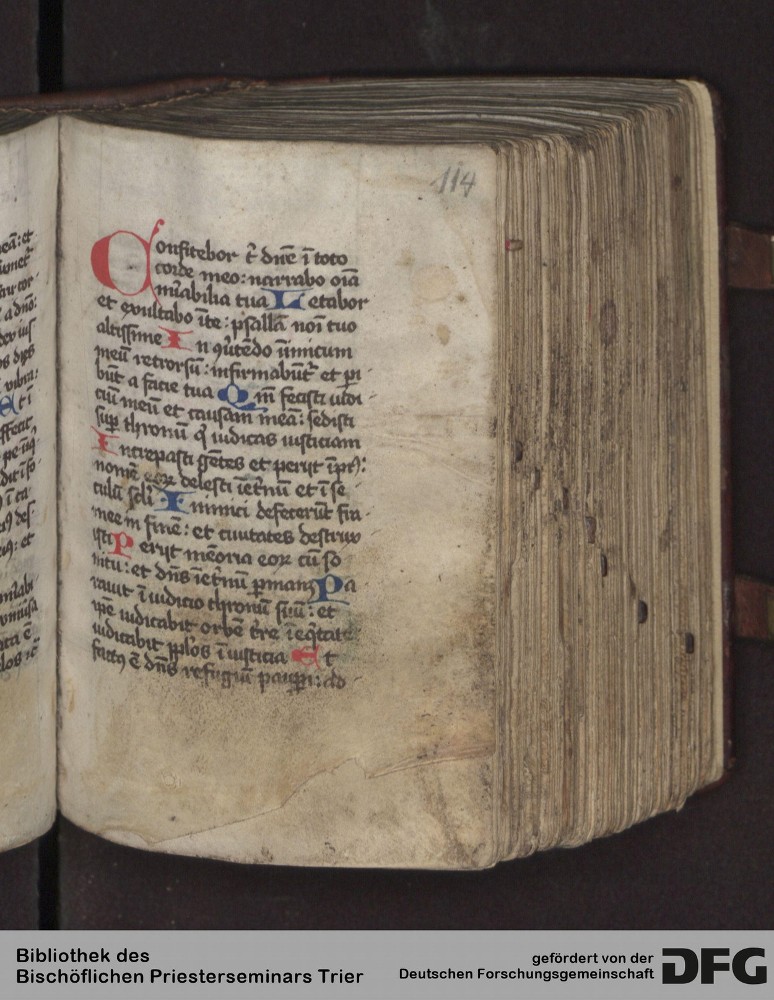 114
Confitebor t̄ dn̄e ī toto
corde meo: narrabo oīa
mirabilia tua Letabor
et exultabo īte: psallā noī tuo
altissime In ꝯūtēdo inimicum
meū retrorsū: infirmabūt᷑ et pi
būt a facie tua Qm̄ fecisti iudi
ciū meū et causam meā: sedisti
sup thronū q̄ iudicas iusticiam
Increpasti gētes et perijt īpiꝰ:
nomē eoꝝ delesti īet̄nū et ī se
culū sc̄li Inimici defecerūt fra
mee in finē: et ciuitates destrux
isti Perijt mēoria eoꝝ cū so
nitu: et dn̄s īet̄nū ꝑmanꝫ Pa
rauit ī iudicio thronū suū: et
ipē iudicabit orbē t̄re ī eq̄tate
iudicabit pp̄los ī iusticia Et
factꝰ ē dn̄s refugiū pauꝑi: ad
Bibliothek des
Bischöflichen Priesterseminars Trier
gefördert von der
Deutschen Forschungsgemeinschaft
DFG